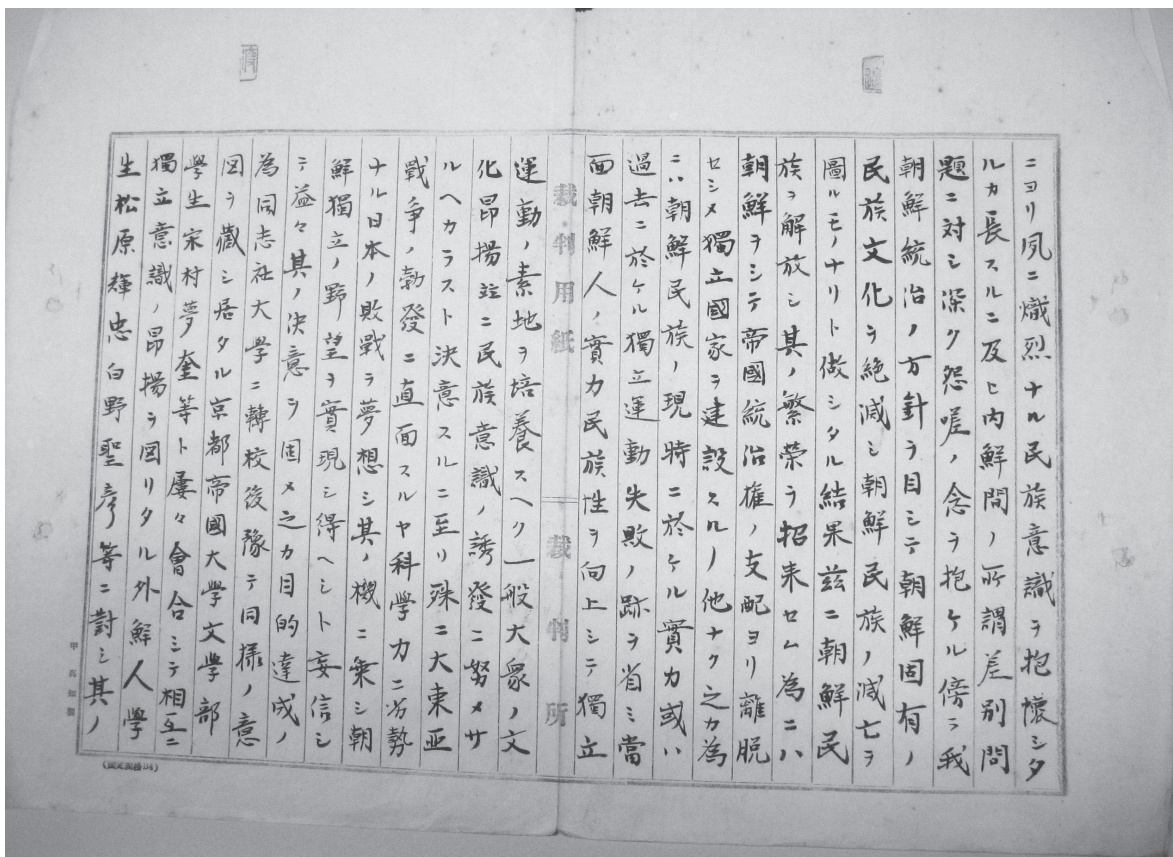 ニヨリ夙ニ熾烈ナル民族意識ヲ抱懷シタ
ルカ長スルニ及ヒ内鮮間ノ所謂差別問
題ニ対シ深ク怨嗟ノ念ヲ抱ケル傍ラ我
朝鮮統治ノ方針ヲ目シテ朝鮮固有ノ
民族文化ヲ絶滅シ朝鮮民族ノ滅亡ヲ
圖ルモノナリト做シタル結果茲ニ朝鮮民
族ヲ解放シ其ノ繁榮ヲ招来セム為ニハ
朝鮮ヲシテ帝國統治権ノ支配ヨリ離脱
セシメ獨立國家ヲ建設スルノ他ナク之カ為
ニハ朝鮮民族ノ現時ニ於ケル實力或ハ
過去ニ於ケル獨立運動失敗ノ跡ヲ省ミ當
面朝鮮人ノ實力民族性ヲ向上シテ獨立
裁判用紙 裁判所
運動ノ素地ヲ培養スヘク一般大衆ノ文
化昂揚竝ニ民族意識ノ誘發ニ努メサ
ルヘカラスト決意スルニ至リ殊ニ大東亜
戰争ノ勃發ニ直面スルヤ科學力ニ劣勢
ナル日本ノ敗戰ヲ夢想シ其ノ機ニ乗シ朝
鮮獨立ノ野望ヲ實現シ得ヘシト妄信シ
テ益々其ノ决意ヲ固メ之カ目的達成ノ
為同志社大學ニ轉校後豫テ同様ノ意
図ヲ藏シ居タル京都帝國大學文學部
學生宋村夢奎等ト屢々會合シテ相互ニ
獨立意識ノ昂揚ヲ図リタル外鮮人學
生松原輝忠白野聖彦等ニ對シ其ノ